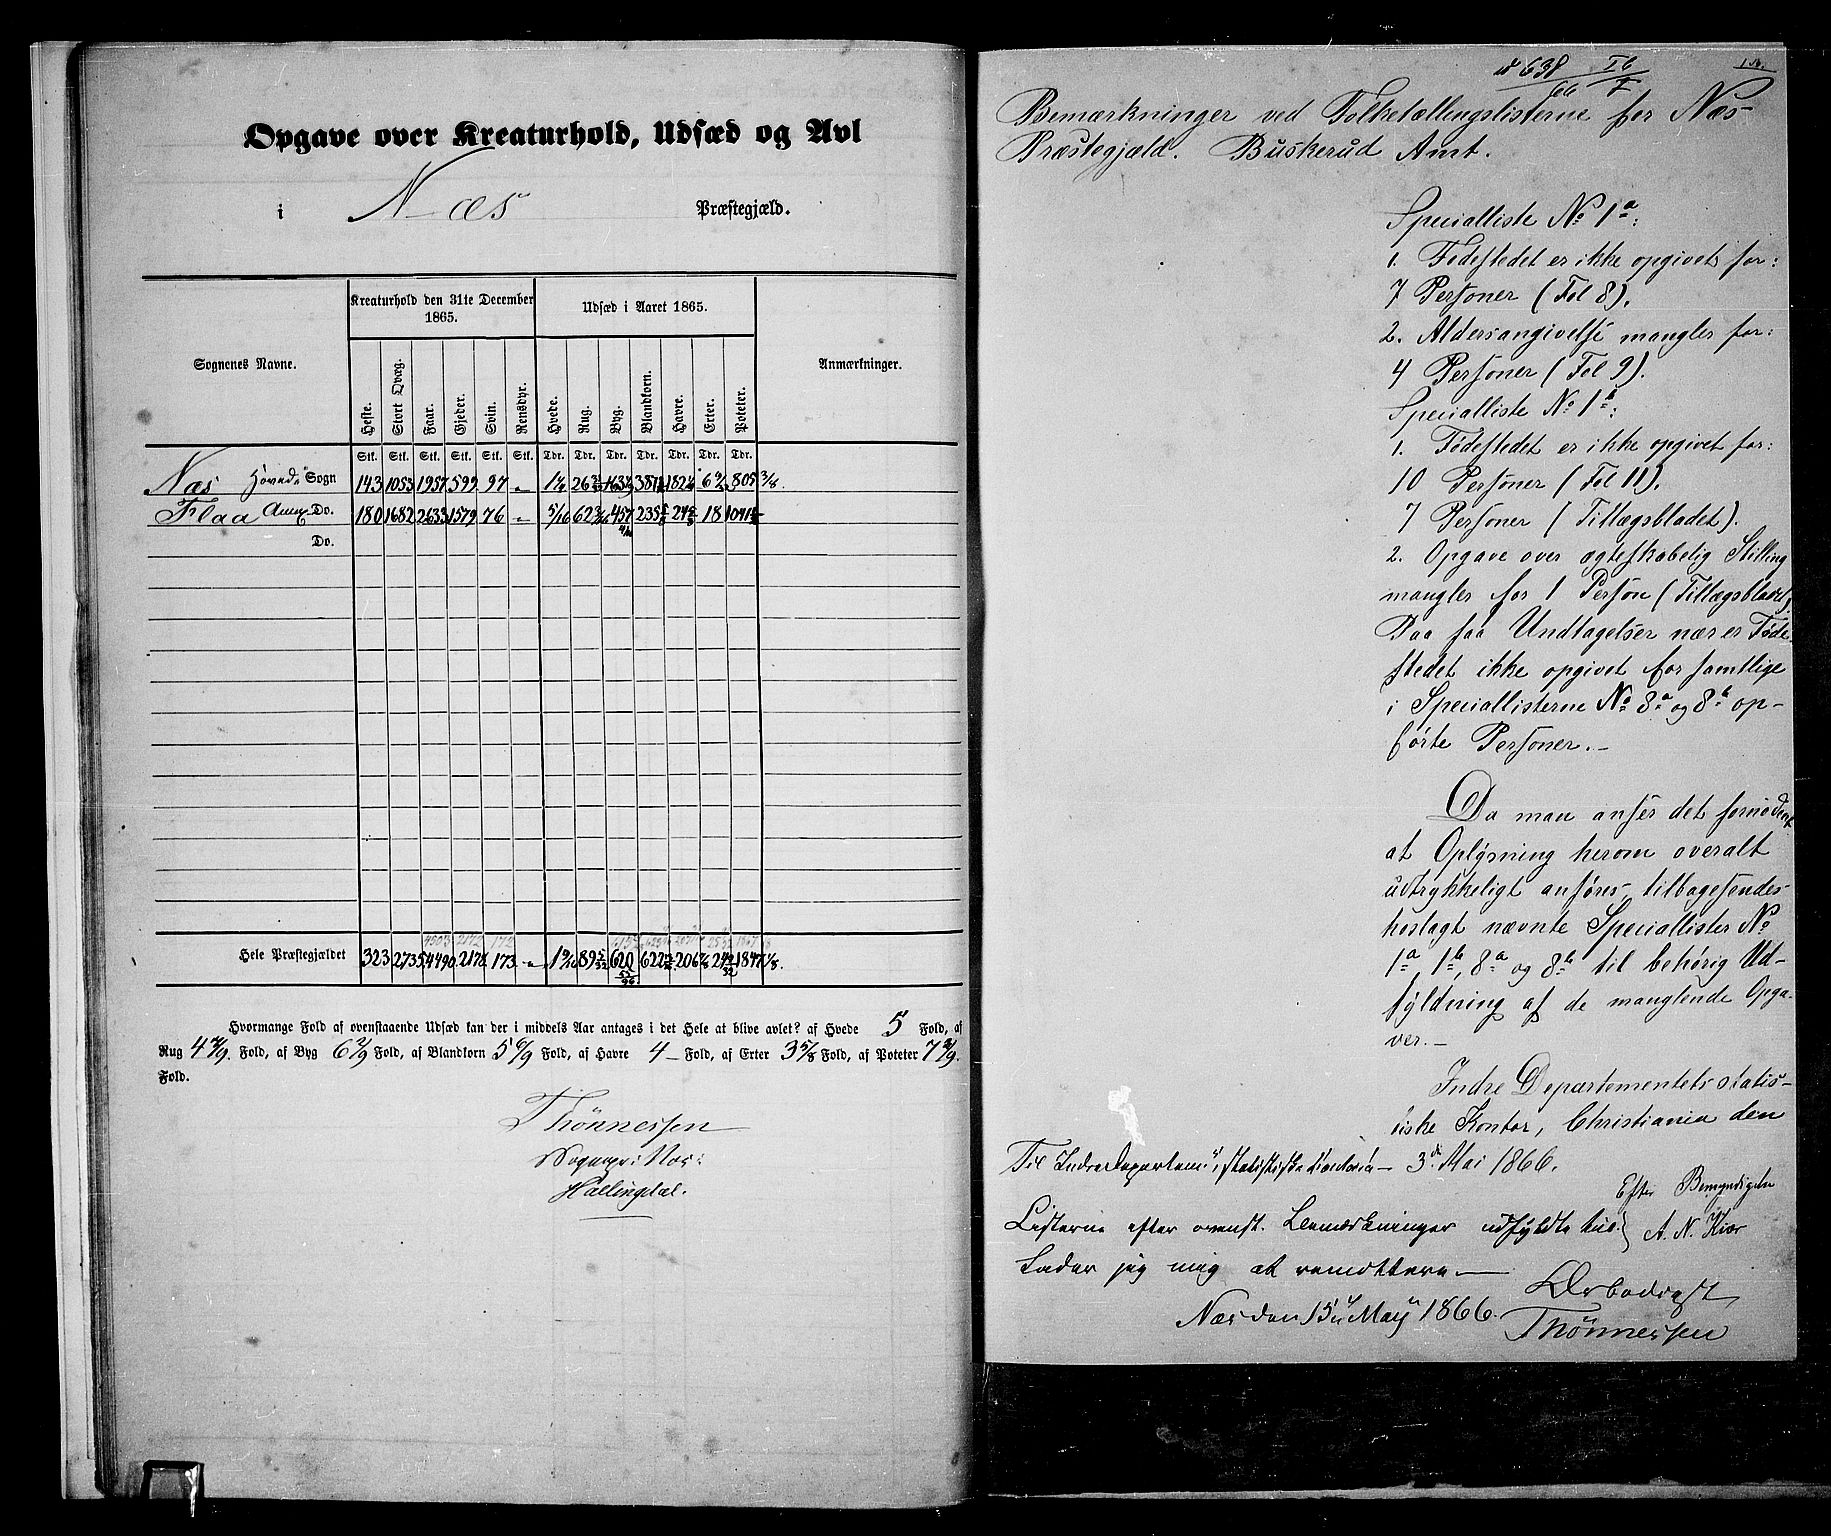 Opgave over Kreaturhold, Udsæd og Avl
i Næs Præstegjæld.
Sognenes Navne. Kreaturhold den 31te December 1865. Udsæd i Aaret 1865. Anmærkninger.
Heste. Stort Qvæg. Faar. Gjeder. Svin. Rensdyr. Hvede. Rug. Byg. Blandkorn. Havre. Erter. Poteter.
Stk. Stk. Stk. Stk. Stk. Stk. Tdr. Tdr. Tdr. Tdr. Tdr. Tdr. Tdr.
Næs Hoved-Sogn 143 1053 1957 599 97 "
Flaa Annex Do. 180 1682 2633 1579 76 " 5/16 18
Do.
4503 2172 172
Hele Præstegjældet 323 2735 173 "
Hvormange Fold af ovenstaaende Udsæd kan der i middels Aar antages i det Hele at blive avlet? af Hvede 5 Fold, af
Rug 4 Fold, af Byg 6 2/9 Fold, af Blandkorn 5 Fold, af Havre 4 – Fold, af Erter 3 5/8 Fold, af Poteter 7 Fold.
Thönnessen
Sognepr: i Næs:
Hallingdal.
638
66
Bemærkninger ved Folketællingslisterne for Næs
Præstegjæld. Buskerud Amt.
Specialliste No 1a:
1. Fødestedet er ikke opgivet for:
7 Personer (Fol 8).
2. Aldersangivelse mangler for:
4 Personer (Fol 9).
Specialliste No 1b:
1. Fødestedet er ikke opgivet for:
10 Personer (Fol 11).
7 Personer (Tillægsbladet).
2. Opgave over ægteskabelig Stilling
mangler for 1 Person (Tillægsbladet)
Paa faa Undtagelser nær er Føde-
stedet ikke opgivet for samtlige
i Speciallisterne No 8a og 8b op-
førte Personer. –
Da man anser det fornødent
at Oplysning herom overalt
udtrykkeligt anføres, tilbagesendes
hoslagt nævnte Speciallister No
1a, 1b, 8a og 8b til behørig Ud-
fyldning af de manglende Opga-
ver. –
Indre Departementets statis-
tiske Kontor, Christiania den
3d Mai 1866.
Efter Bemyndigelse
A. N. Kiær
Til Indredepartem: statistiske Contoir –
Listerne efter ovenst. Bemærkninger udfyldte
lader jeg mig at remittere –
Næs den 15de May 1866.
Ærbødigst
Thönnessen